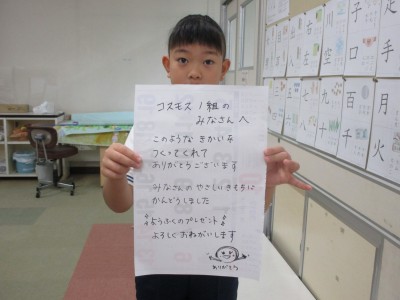 コスモス1組の
みなさんへ
このような きかいを
つくってくれて
ありがとうございます
みなさんの やさしい きもちに
かんどうしました
ようふくのプレゼント
よろしくおねがいします
ありがとう
足
手
月
火
子
口
百
千
右
左
川
空